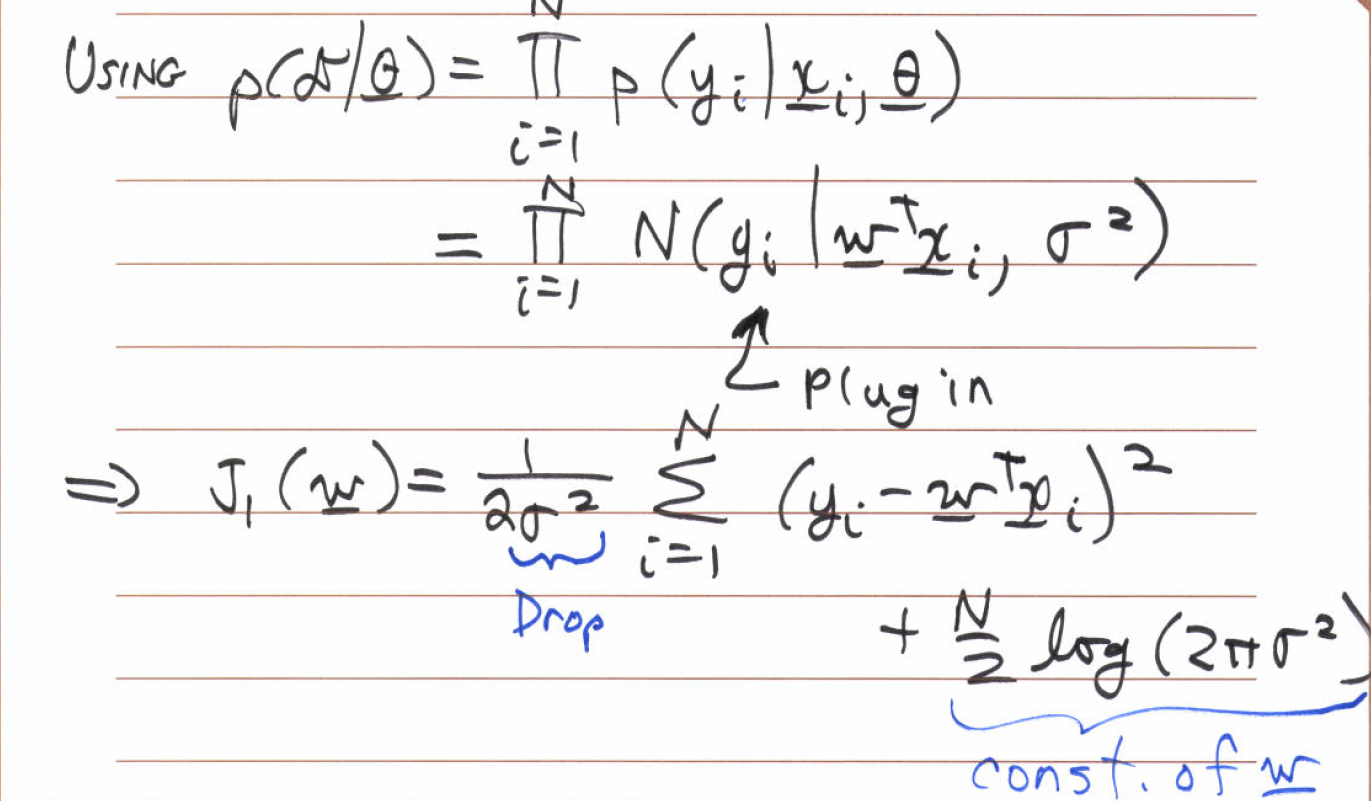 USING p(𝒟|θ) = ∏_{i=1}^{N} p(y_i | x_i, θ)
= ∏_{i=1}^{N} N(y_i | w^T x_i, σ²)
plug in
⇒ J_1(w) = 1/(2σ²) ∑_{i=1}^{N} (y_i − w^T x_i)²
Drop
+ N/2 log(2πσ²)
const. of w